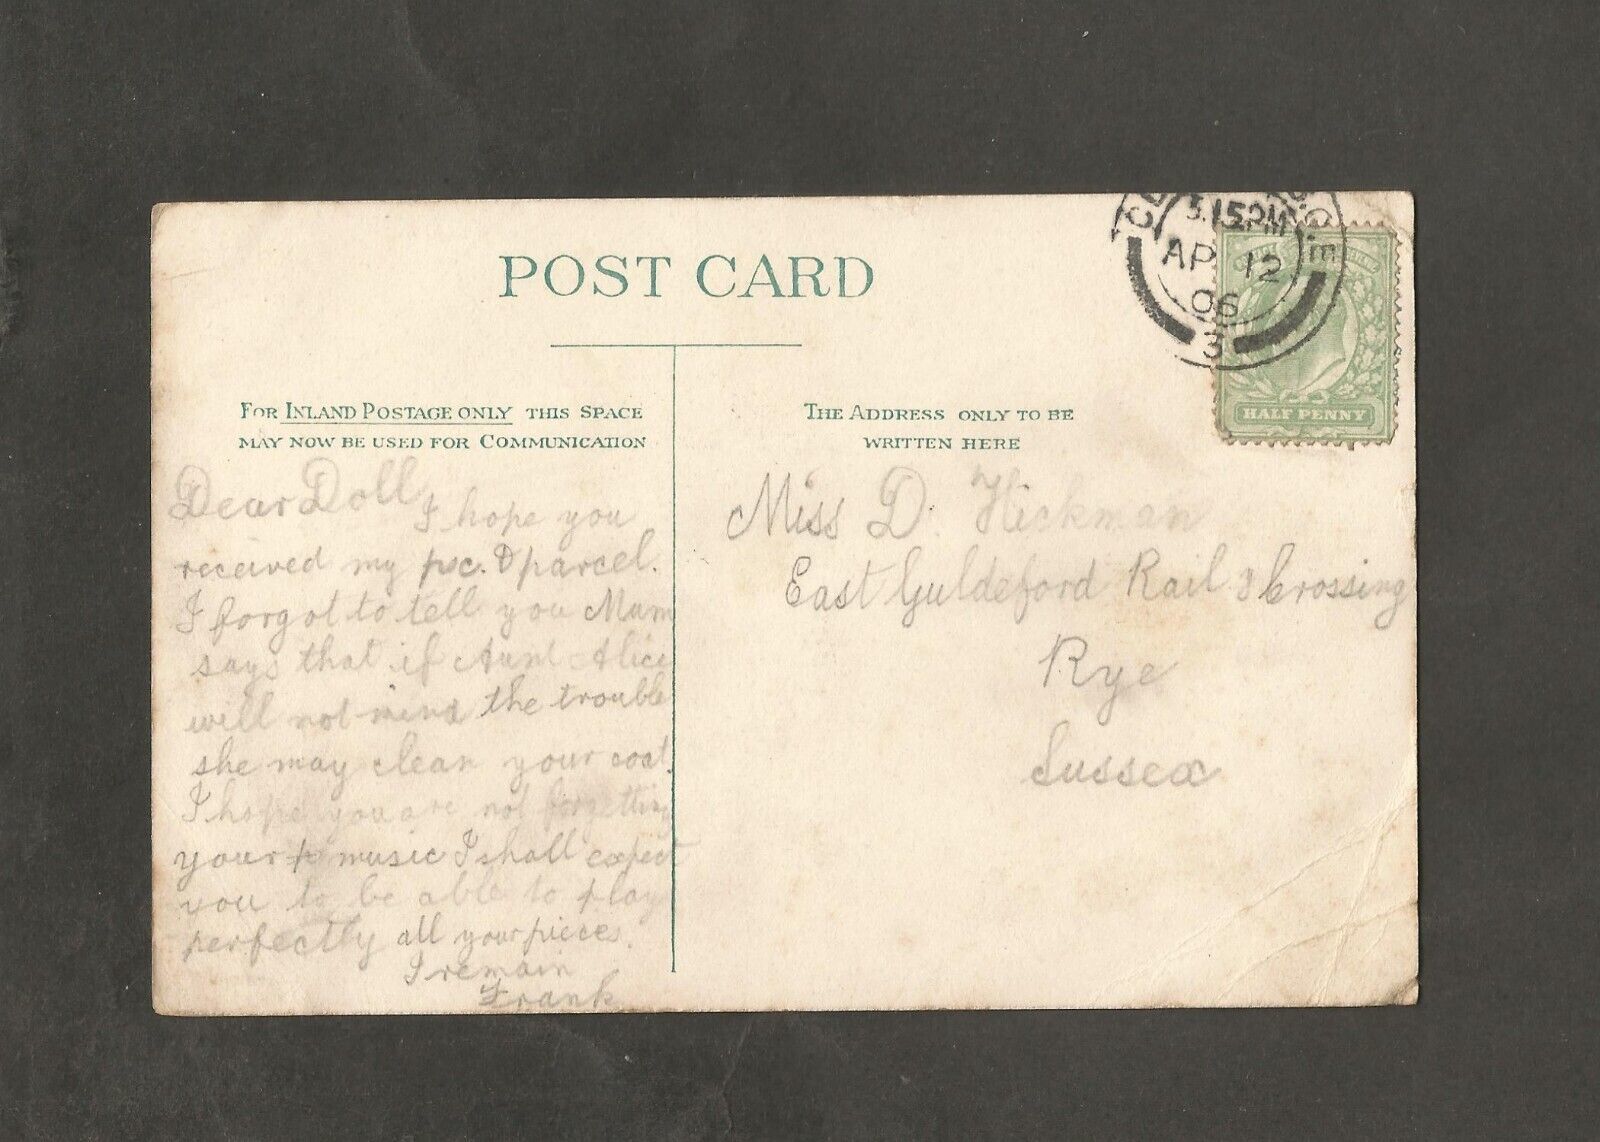 POST CARD
FOR INLAND POSTAGE ONLY THIS SPACE
MAY NOW BE USED FOR COMMUNICATION
Dear Doll
I hope you
received my p.c. & parcel.
I forgot to tell you Mum
says that if Aunt Alice
will not mind the trouble
she may clean your coat.
I hope you are not forgetting
your music I shall expect
you to be able to play
perfectly all your pieces.
I remain
Frank
THE ADDRESS ONLY TO BE
WRITTEN HERE
Miss D. Hickman
East Guldeford Rail & Crossing
Rye
Sussex
5.15PM
AP 12
06
3
S.E
HALF PENNY